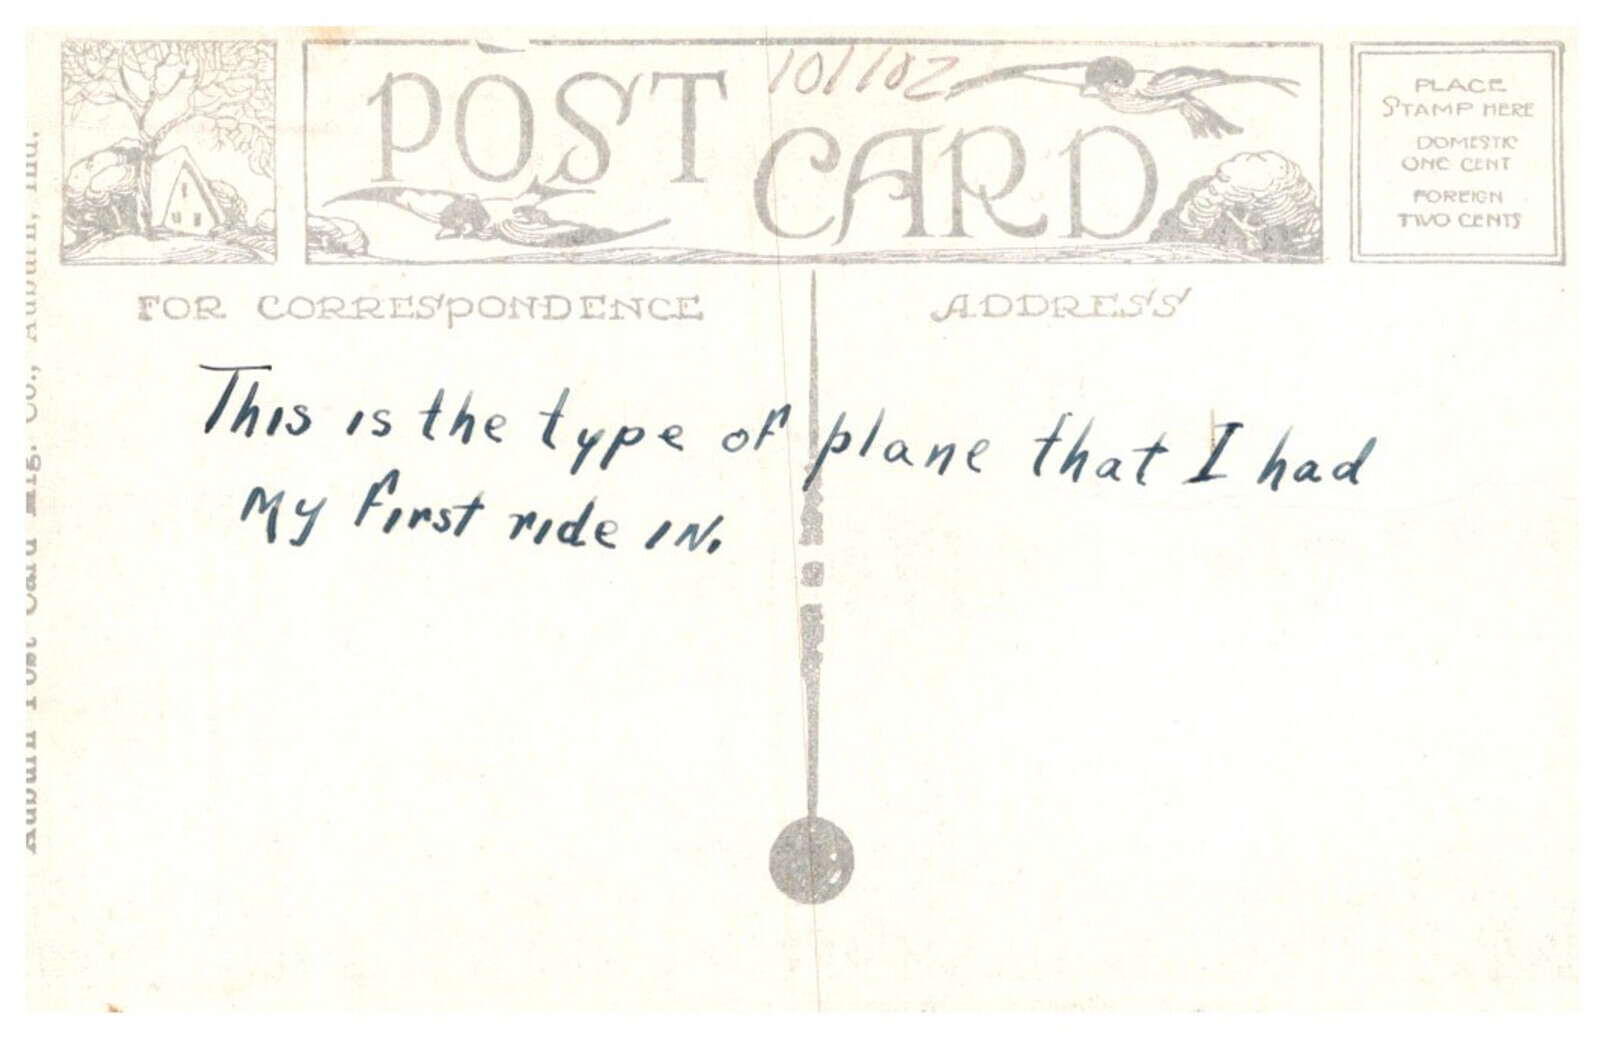 POST CARD
101102
PLACE
STAMP HERE
DOMESTIC
ONE CENT
FOREIGN
TWO CENTS
FOR CORRESPONDENCE
ADDRESS
This is the type of plane that I had
My first ride in.
Auburn Post Card Mfg. Co., Auburn, Ind.